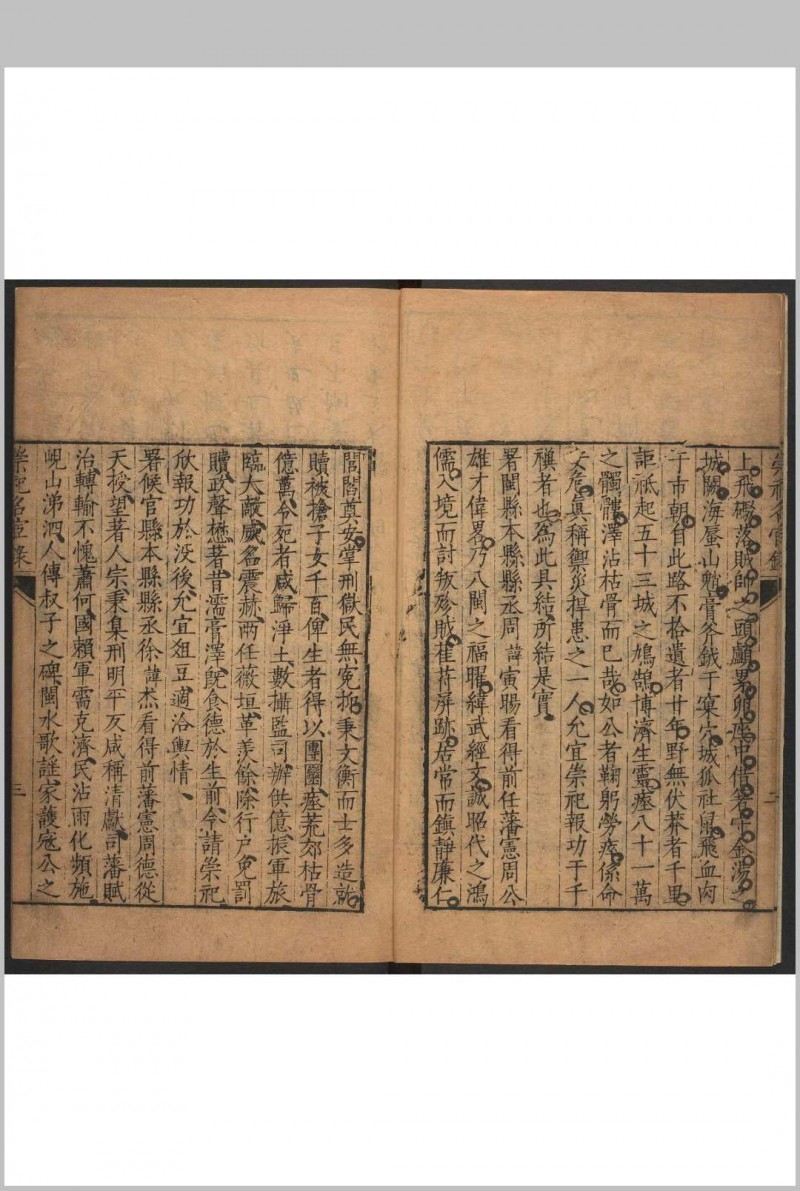 崇祀名宦錄
二
上飛礮落賊帥之頭顱累卵座中借箸守金湯之
城闕海蜃山魈膏斧鉞于窠穴城狐社鼠飛血肉
于市朝自此路不拾遺者廿年野無伏莽者千里
詎祇起五十三城之鳩鵠博濟生靈瘞八十一萬
之髑髏澤沾枯骨而已哉如公者鞠躬勞瘁係命
安危真稱禦災捍患之一人允宜崇祀報功于千
禩者也爲此具結所結是實
署閩縣本縣縣丞周諱寅賜看得前任藩憲周公
雄才偉畧乃八閩之福曜緯武經文誠昭代之鴻
儒入境而討叛殄賊萑苻屏跡居常而鎮靜廉仁
閭閻奠安掌刑獄民無冤抑秉文衡而士多造就
贖被搶子女千百俾生者得以團圞瘞荒郊枯骨
億萬令死者咸歸淨土數攝監司辦供億振軍旅
臨大敵威名震赫兩任薇垣革羨餘除行户免罰
贖政聲懋著昔濡膏澤既食德於生前今請崇祀
欣報功於沒後允宜俎豆適洽輿情
署候官縣本縣縣丞徐諱杰看得前藩憲周德從
天授望著人宗秉臬刑明平反咸稱清獻司藩賦
治轉輸不愧蕭何國賴軍需克濟民沾雨化頻施
峴山涕泗人傳叔子之碑閩水歌謠家護寇公之
崇祀名宦錄
三